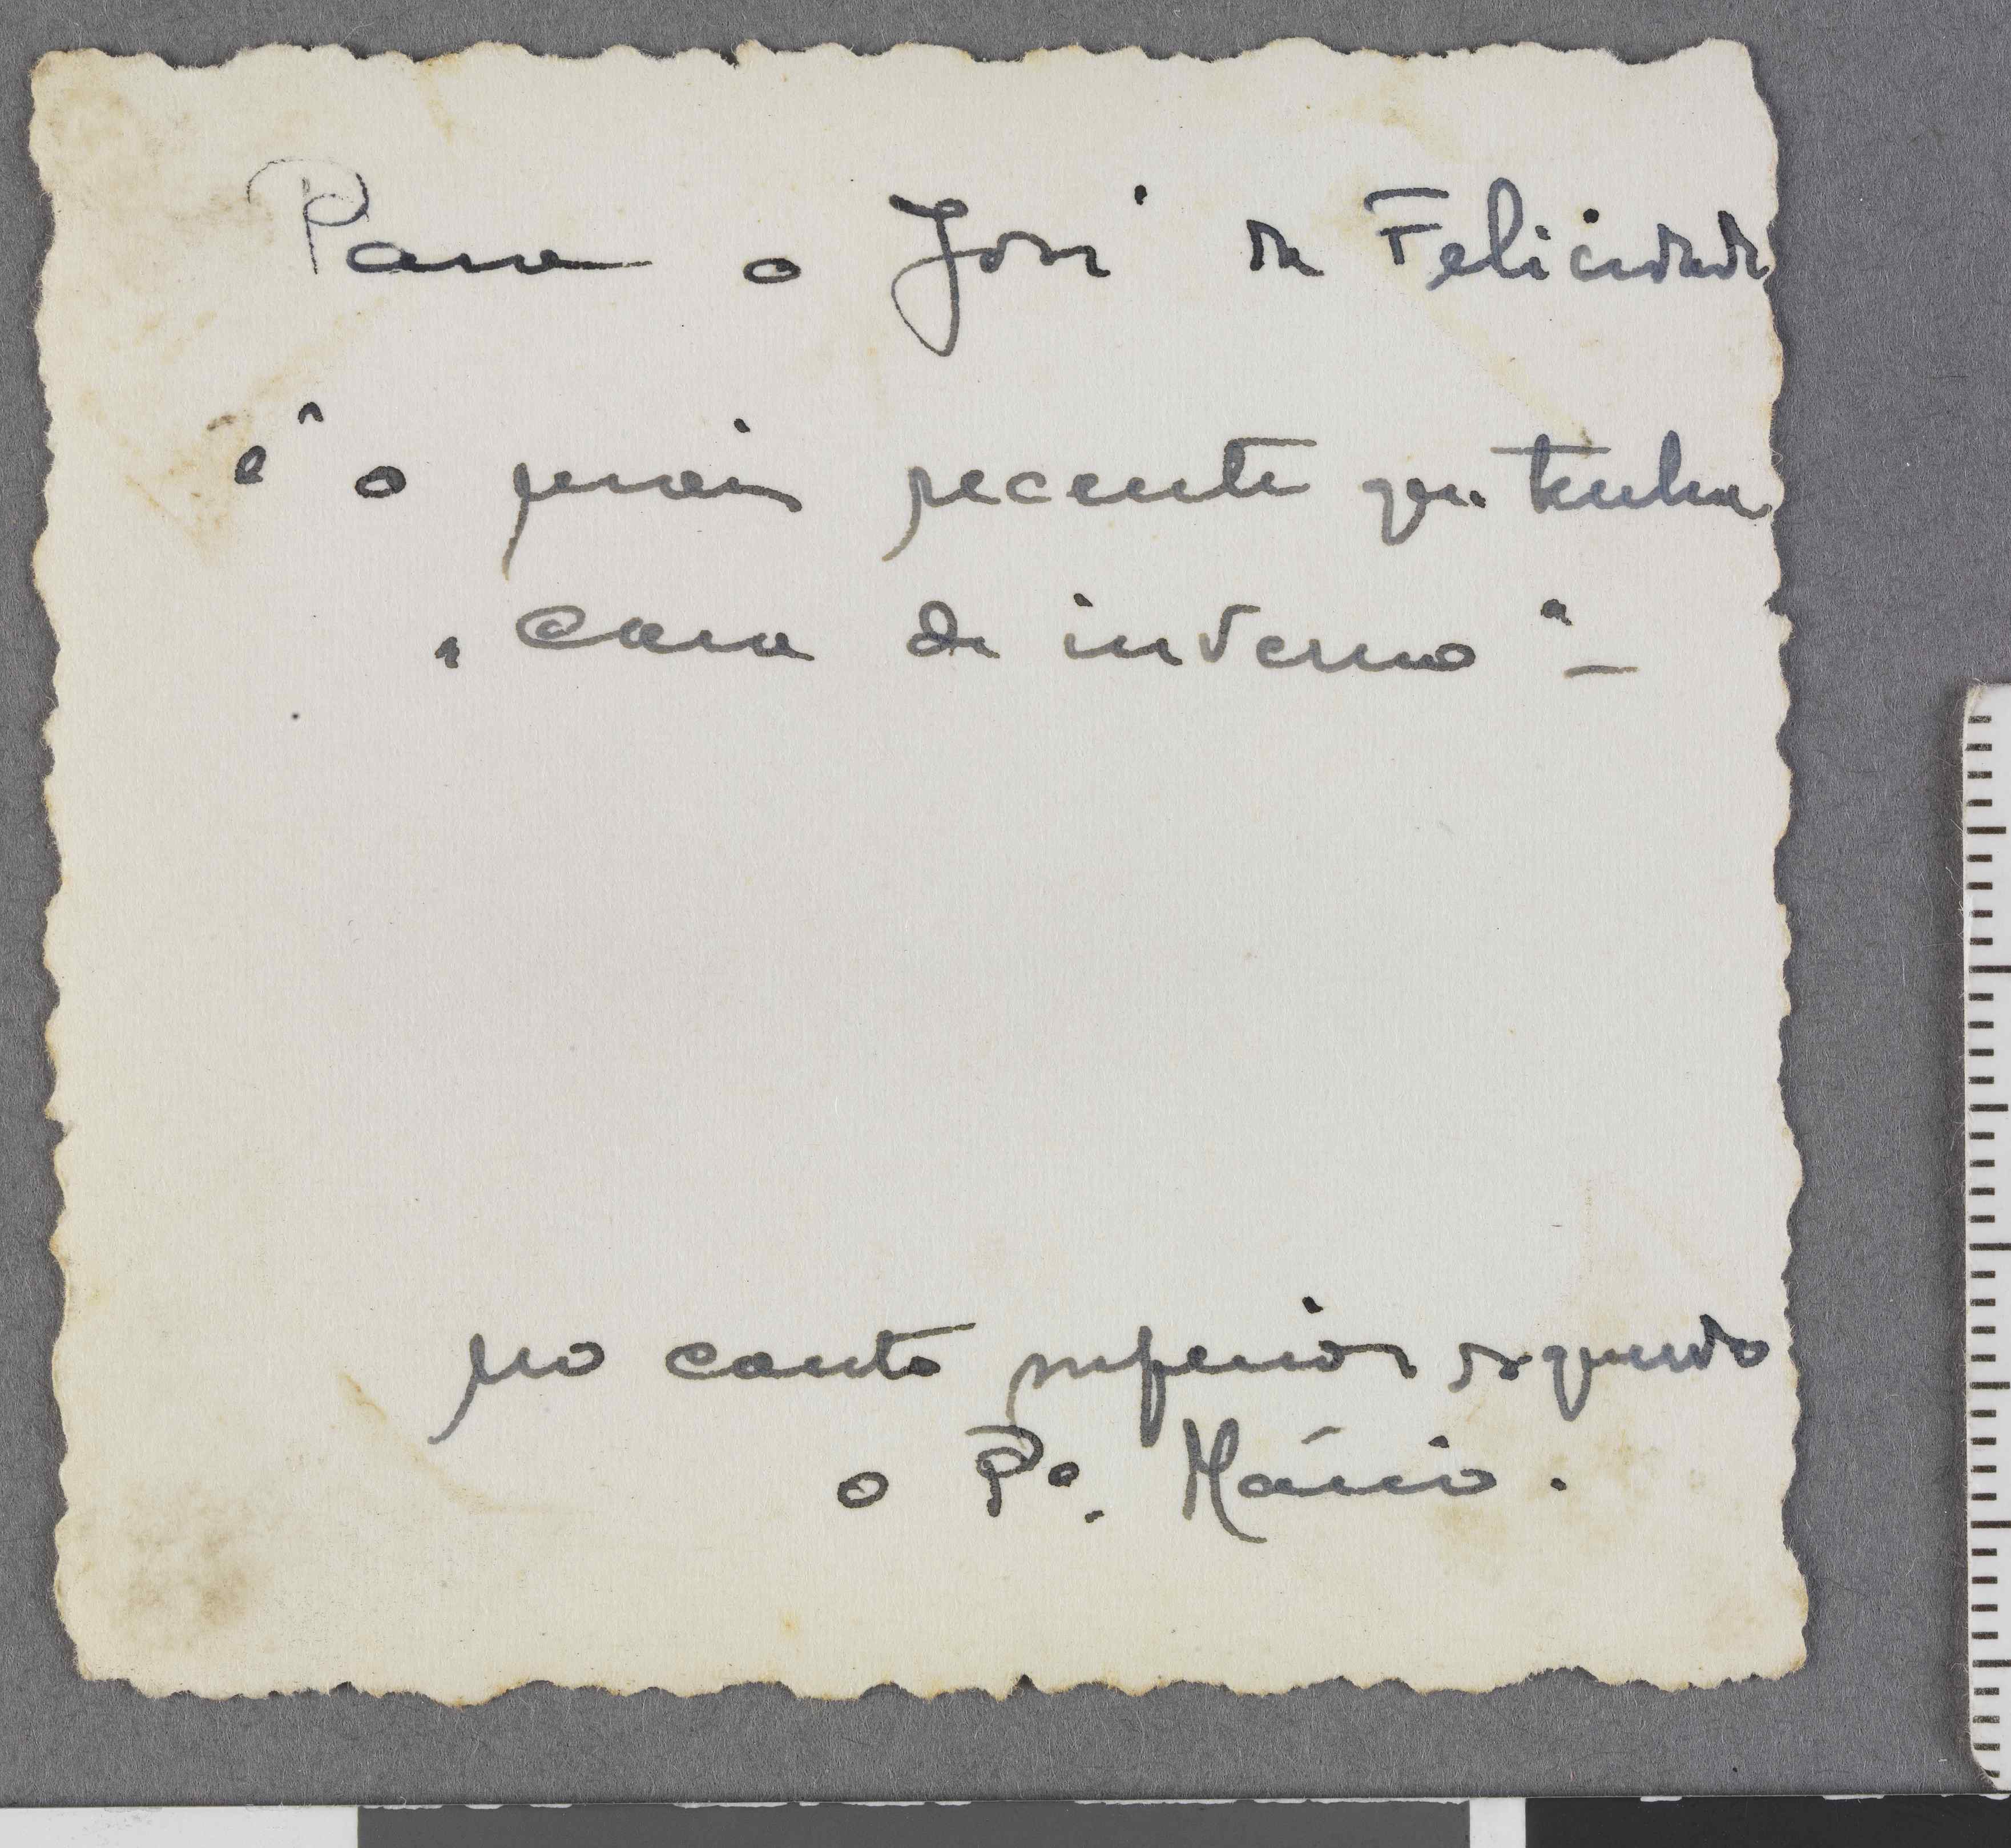 Para o José da Felicidade
é o mais recente que tenho
"Cara de inverno" -
no canto superior esquerdo
o Pe. Mário.